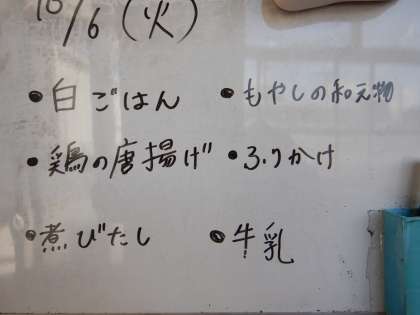 10/6(火)
・白ごはん ・もやしの和え物
・鶏の唐揚げ ・ふりかけ
・煮びたし ・牛乳